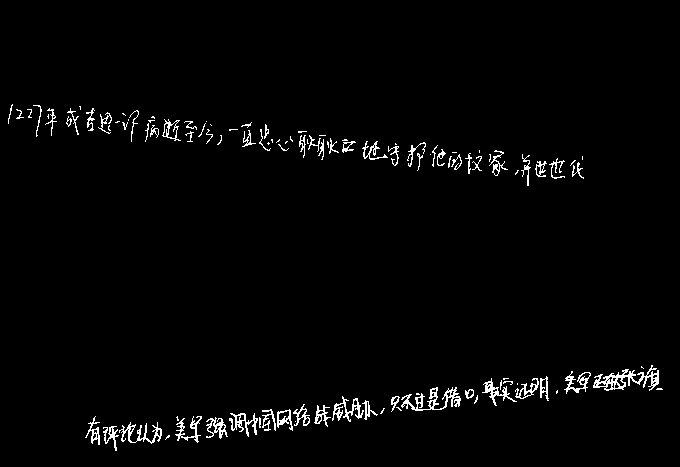 1227年成吉思汗病逝至今，一直忠心耿耿地守护他的坟冢，并世世代
有评论认为，美军强调中国网络战威胁，只不过是借口，事实证明，美军正大张旗